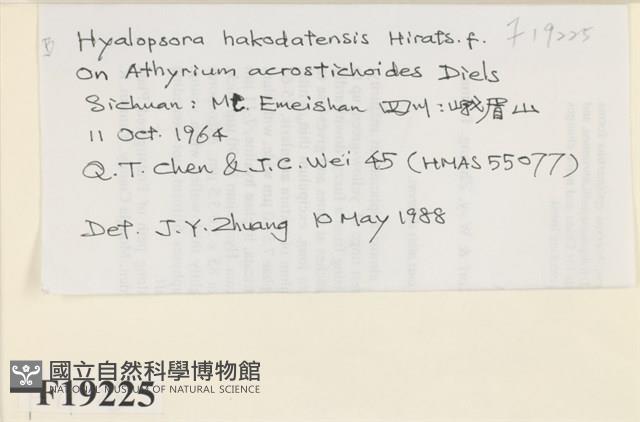 Hyalopsora hakodatensis Hirats.f. F19225
On Athyrium acrostichoides Diels
Sichuan: Mt. Emeishan 四川:峨眉山
11 Oct. 1964
Q.T. Chen & J.C. Wei 45 (HMAS 55077)
Det. J.Y. Zhuang 10 May 1988
國立自然科學博物館
NATIONAL MUSEUM OF NATURAL SCIENCE
F19225